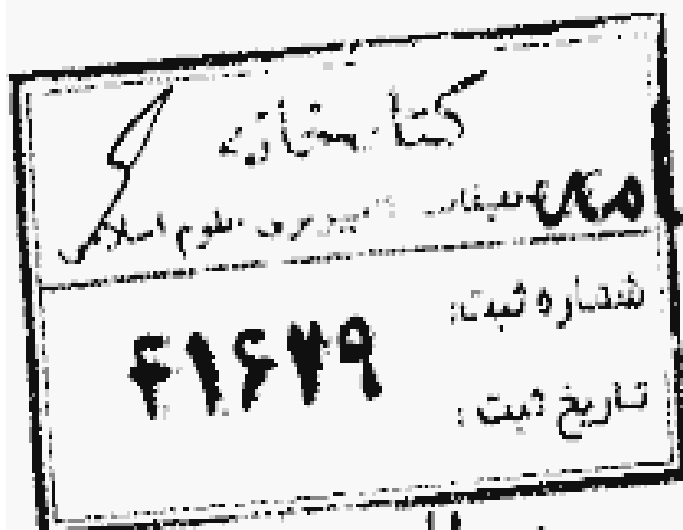 کتابخانه
تحقیقات کامپیوتری علوم اسلامی
شماره ثبت: ۴۱۶۷۹
تاریخ ثبت: